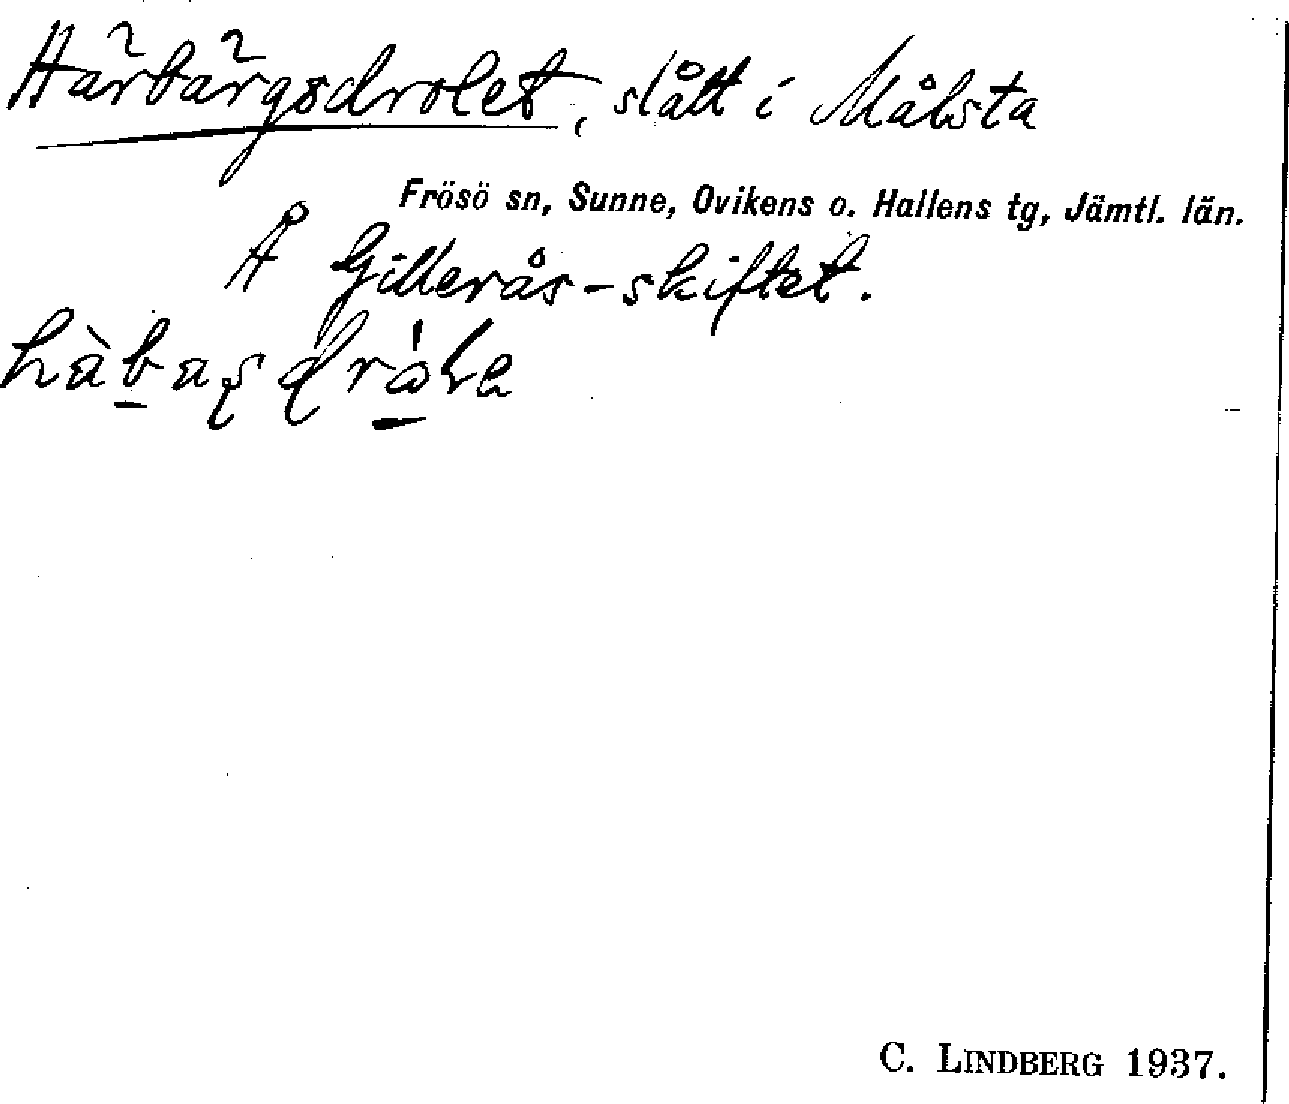 Härbärgsdrolet, slått i Målsta
Frösö sn, Sunne, Ovikens o. Hallens tg, Jämtl. län.
Å Gillerås-skiftet.
C. LINDBERG 1937.